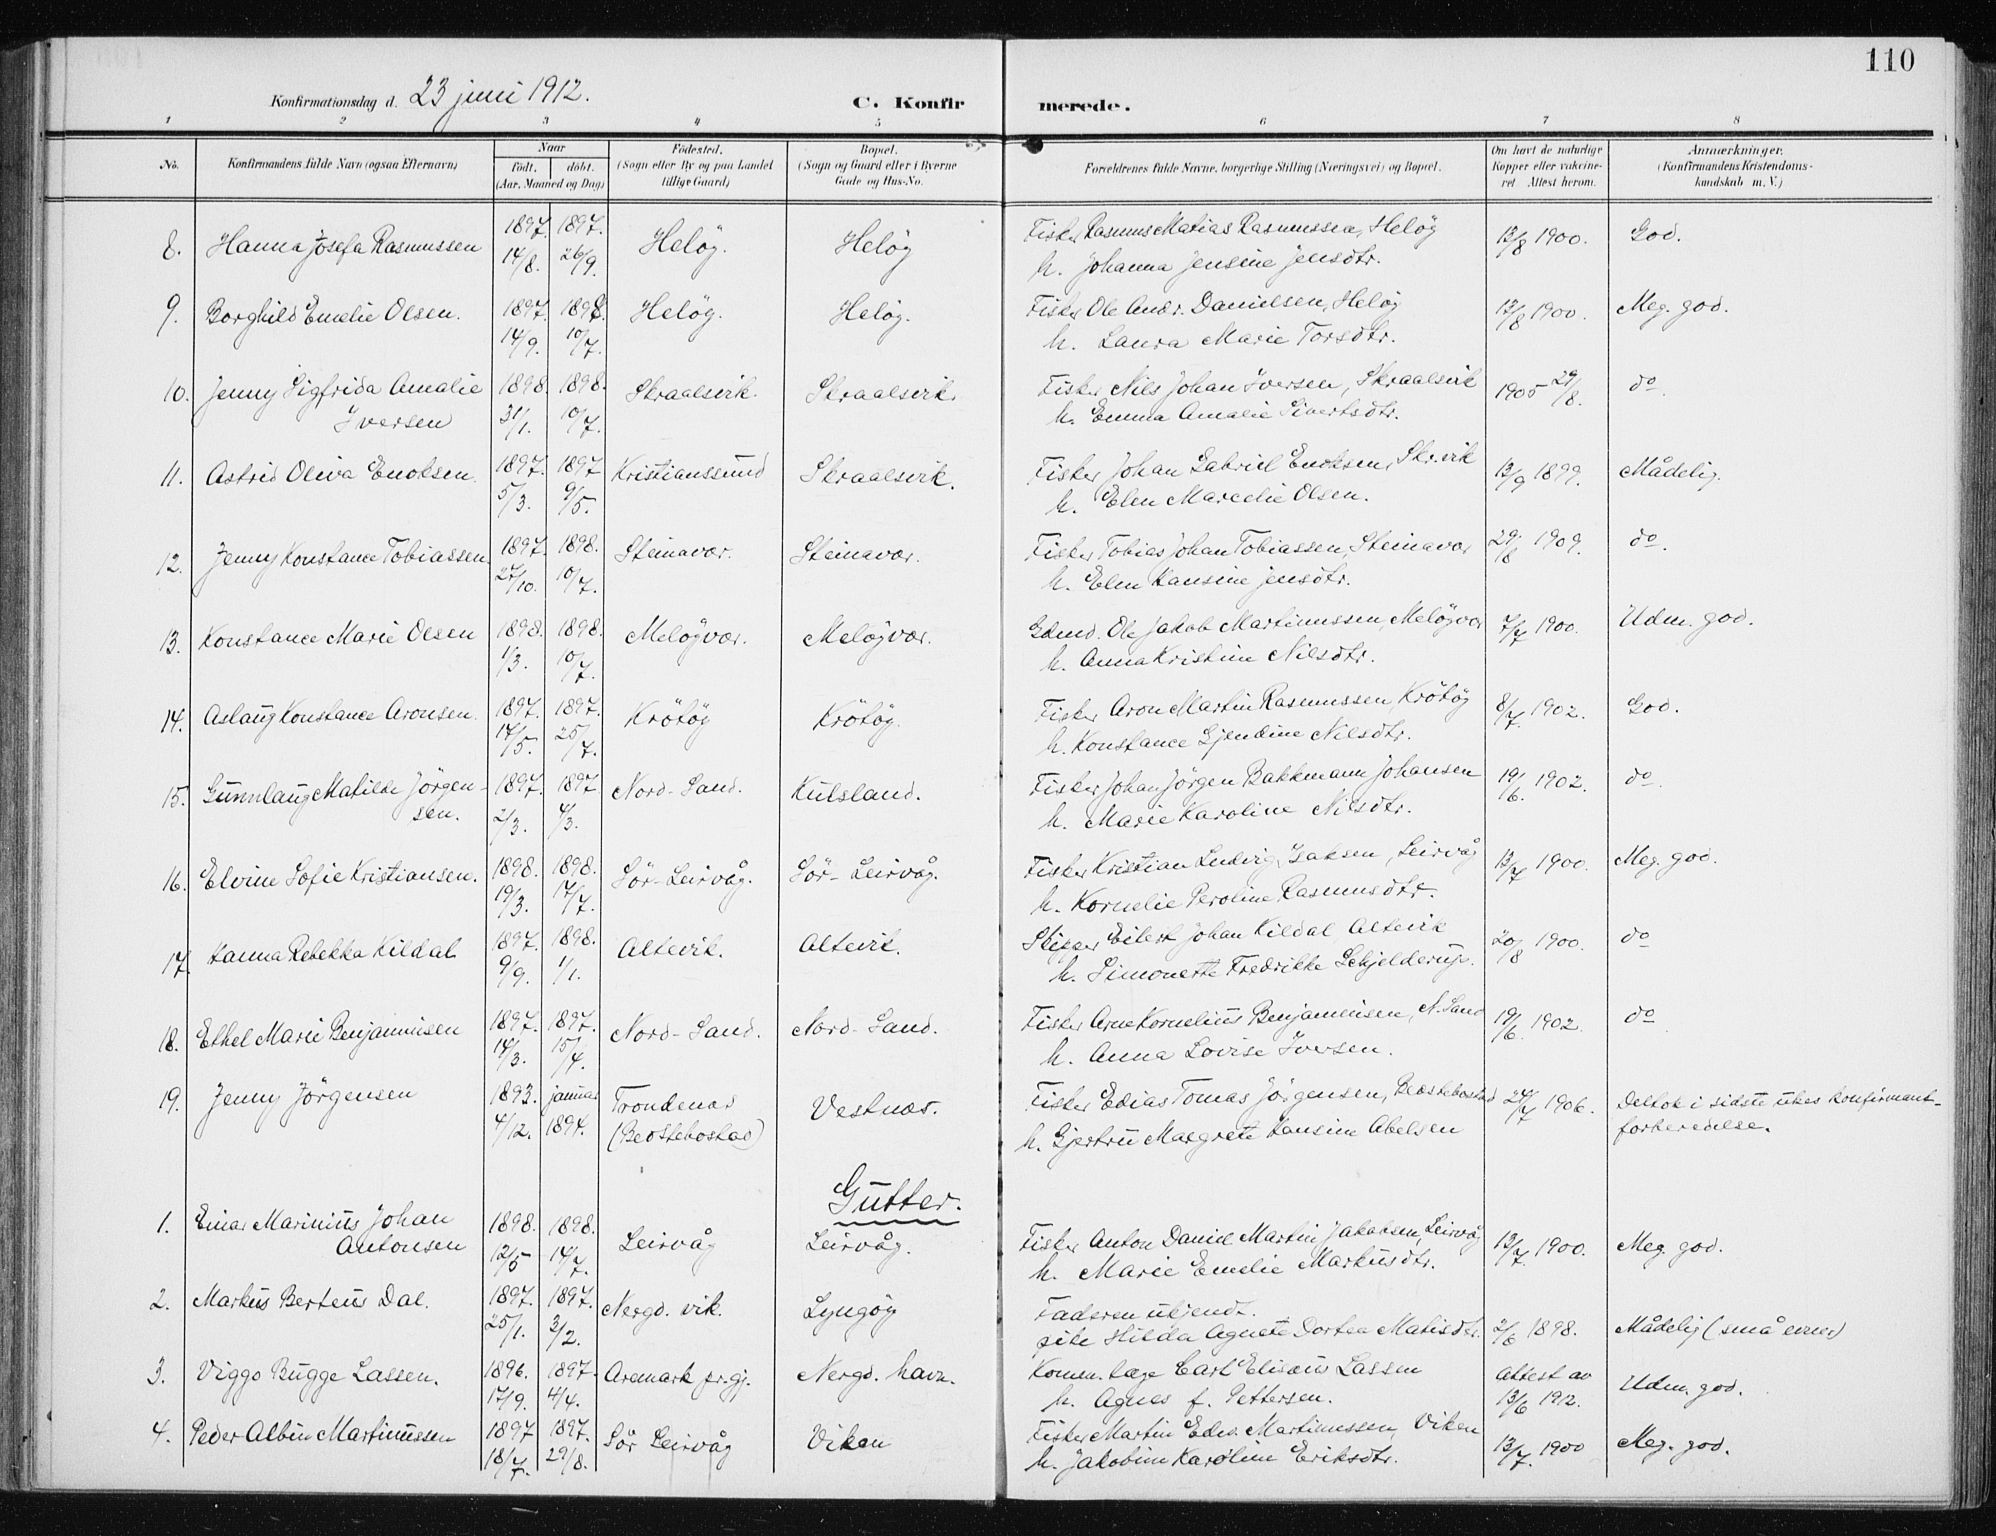 110
Konfirmationsdag d. 23 juni 1912.
C. Konfirmerede.
1 2 3 4 5 6 7 8
No. Konfirmandens fulde Navn (ogsaa Efternavn) Naar født. døbt. (Aar, Maaned og Dag) Fødested. (Sogn eller By og paa Landet tillige Gaard) Bopæl. (Sogn og Gaard eller i Byerne Gade og Hus-No. Forældrenes fulde Navne, borgerlige Stilling (Næringsvei) og Bopæl. Om havt de naturlige Kopper eller vakcineret Attest herom. Anmærkninger. (Konfirmandens Kristendomskundskab m. V.)
8. Hanna Josefa Rasmussen 1897. 14/8. 1897. 26/9. Heløy. Heløy Fisker Rasmus Matias Rasmussen, Heløy 13/8 1900. God.
h. Johanna Jensine Jensdtr.
9. Borghild Emelie Olsen. 1897. 14/9. 1898. 10/7. Heløy. Heløy. Fisker Ole Andr. Danielsen, Heløy 13/8 1900. Meg. god.
h. Laura Marie Torsdtr.
10. Jenny Sigfrida Amalie 1898. 31/1. 1898. 10/7. Skraalsvik. Skraalsvik. Fisker Nils Johan Iversen, Skraalsvik 1905 29/8. do.
Iversen h. Emma Amalie Sivertsdtr.
11. Astrid Oliva Enoksen. 1897. 5/3. 1897 9/5. Kristianssund Skraalsvik. Fisker Johan Gabriel Enoksen, Skr.vik 13/9 1899. Mådelig.
h. Elen Marcelie Olsen.
12. Jenny Konstance Tobiassen 1897. 27/10. 1898. 10/7. Steinavær. Steinavær. Fisker Tobias Johan Tobiassen, Steinavær 29/8 1909. do.
h. Elen Hansine Jensdtr.
13. Konstance Marie Olsen 1898. 1/3. 1898. 10/7. Meløyvær. Meløyvær. Gdmd. Ole Jakob Martinussen, Meløyvær 7/7 1900. Udm. god.
h. Anna Kristine Nilsdtr.
14. Aslaug Konstance Aronsen. 1897. 14/5. 1897. 25/7. Krøtøy Krøtøy. Fisker Aron Martin Rasmussen, Krøtøy 8/7. 1902. God.
h. Konstance Gjendine Nilsdtr.
15. Gunnlaug Matilde Jörgen- 1897. 2/3. 1897 4/3. Nord-Sand. Kulsland. Fisker Johan Jørgen Bakkmann Johansen 19/6. 1902. do.
sen. h. Marie Karoline Nilsdtr.
16. Elvine Sofie Kristiansen. 1898. 19/3. 1898. 17/7. Sör-Leirvåg. Sör-Leirvåg. Fisker Kristian Ludvig Isaksen, Leirvåg 13/7 1900. Meg. god.
h. Kornelie Peroline Rasmusdtr.
17. Hanna Rebekka Kildal 1897. 9/9. 1898. 1/1. Altevik. Altevik. Skipper Eilert Johan Kildal Altevik 20/8 1900. do
h. Simonette Fredrikke Schjelderup.
18. Ethel Marie Benjaminsen 1897. 14/3. 1897. 15/4. Nord-Sand. Nord-Sand. Fisker Arne Kornelius Benjaminsen, N. Sand 19/6. 1902. do
h. Anna Lovise Iversen.
19. Jenny Jörgensen 1893. 4/12. januar 1894. Trondenæs Vestnæs. Fisker Edias Tomas Jörgensen, 24/7 1906. Deltok i sidste ukes konfirmant-
h. Gjertru Margrete Hansine Abelsen forberedelse.
Gutter.
1. Einar Marinius Johan 1898. 12/5 1898. 14/7. Leirvåg Leirvåg. Fisker Anton Daniel Martin Jakobsen, Leirvåg 13/7. 1900. Meg. god.
Antonsen h. Marie Emelie Markusdtr.
2. Markus Berteus Dal. 1897. 25/1. 1897. 3/2. Nergd. vik. Lyngøy Faderen ukjendt.
pike Hilda Agnete Dortea Matisdtr. 2/6 1898. Mådelig (små evner)
3. Viggo Bugge Lassen. 1896. 17/9. 1897. 4/4. Aremark pr.gj. Nergd. havn. Komm. læge Carl Elisæus Lassen attest av
h. Agnes f. Pettersen. 13/6 1912. Udm. god.
4. Peder Albin Martinussen 1897 18/7. 1897. 29/8. Sör Leirvåg Viken Fisker Martin Edv. Martinussen, Viken
h. Jakobine Karoline Eriksdtr. 13/7. 1900 Meg. god.